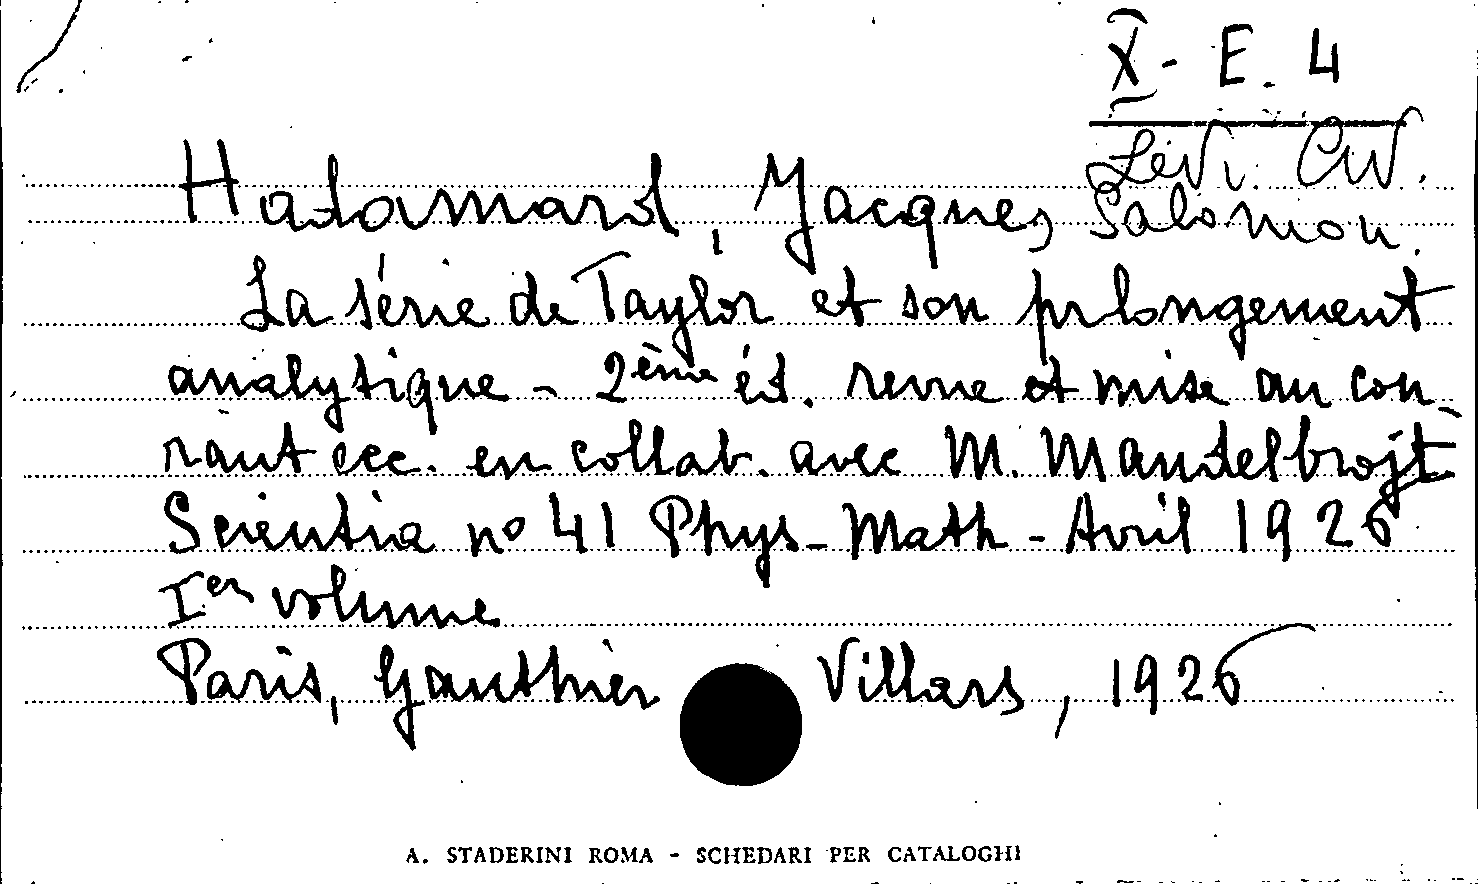 X - E. 4
Levi. Civ.
Hadamard, Jacques Salomon.
La série de Taylor et son prlongement
analytique - 2ème éd. revue et mise au cou-
rant ecc. en collab. avec M. Mandelbrojt
Scientia nº 41 Phys-Math - Avril 1926
Ier volume
Paris, Gauthier Villars, 1926
A. STADERINI ROMA - SCHEDARI PER CATALOGHI